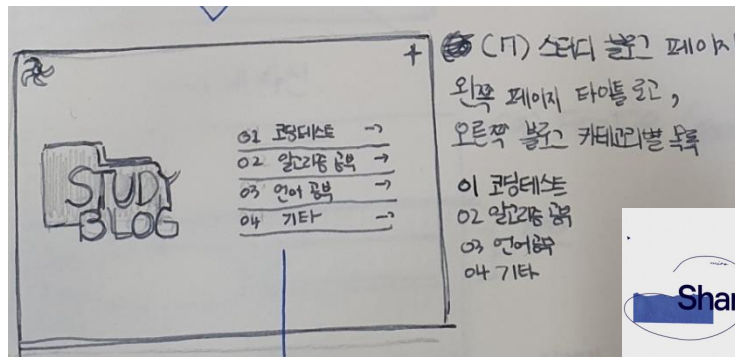 01 코딩테스트 →
02 알고리즘 공부 →
03 언어 공부 →
04 기타 →
STUDY
BLOG
(17) 스터디 블로그 페이지
왼쪽 페이지 타이틀 로고,
오른쪽 블로그 카테고리별 목록
01 코딩테스트
02 알고리즘 공부
03 언어공부
04 기타
Shar